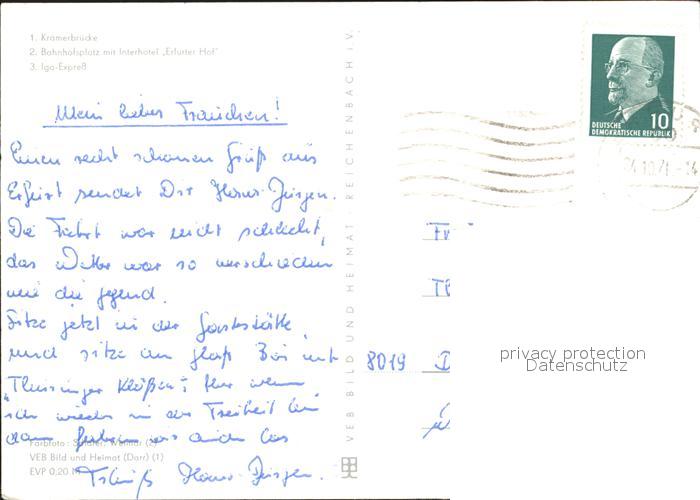 1. Krämerbrücke
2. Bahnhofsplatz mit Interhotel „Erfurter Hof"
3. Iga-Expreß
Mein liebes Frauchen!
Einen recht schönen Gruß aus
Erfurt sendet Dir Hans-Jürgen.
Die Fahrt war nicht schlecht,
das Wetter war so verschieden
wie die Gegend.
Sitze jetzt in der Gaststätte
und sitze am Glas Bier mit
"Thüringer Klößen"
ich wieder in der Freiheit bin
dann
Farbfoto: Weimar (2)
VEB Bild und Heimat (Darr) (1)
EVP 0,20 M
Tschüß Hans-Jürgen.
VEB BILD UND HEIMAT REICHENBACH i.V.
DEUTSCHE
DEMOKRATISCHE REPUBLIK
10
8019 D
privacy protection
Datenschutz